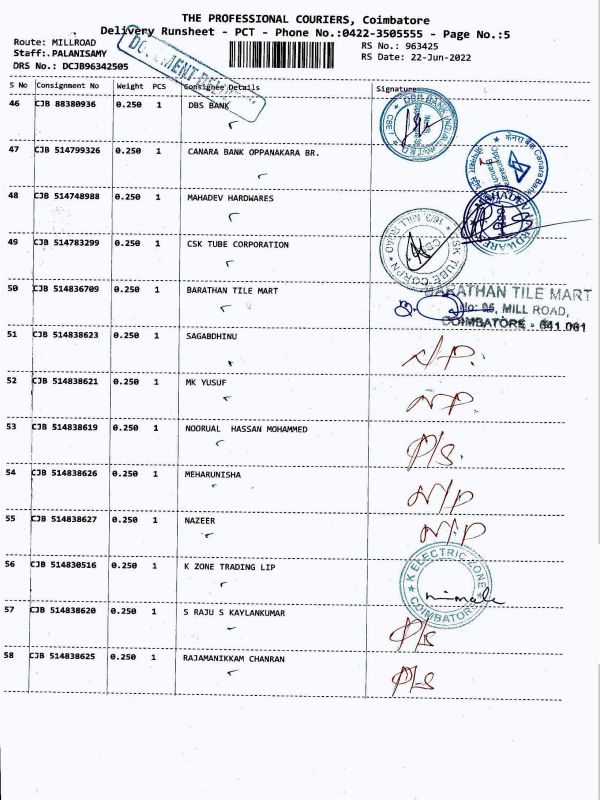 THE PROFESSIONAL COURIERS, Coimbatore
Delivery Runsheet - PCT - Phone No.:0422-3505555 - Page No.:5
Route: MILLROAD RS No.: 963425
Staff:.PALANISAMY RS Date: 22-Jun-2022
DRS No.: DCJB96342505
DOCUMENT
S No Consignment No Weight PCS Consignee Details Signature
46 CJB 88380936 0.250 1 DBS BANK
DBS BANK INDIA CBE
47 CJB 514799326 0.250 1 CANARA BANK OPPANAKARA BR.
केनरा बैंक Canara Bank Oppanakara Branch
48 CJB 514748988 0.250 1 MAHADEV HARDWARES
MAHADEV
49 CJB 514783299 0.250 1 CSK TUBE CORPORATION
CSK TUBE CORPN ROAD
50 CJB 514836709 0.250 1 BARATHAN TILE MART
BARATHAN TILE MART
MILL ROAD,
COIMBATORE - 641 001
51 CJB 514838623 0.250 1 SAGABDHINU N/P.
52 CJB 514838621 0.250 1 MK YUSUF NP.
53 CJB 514838619 0.250 1 NOORUAL HASSAN MOHAMMED P/s.
54 CJB 514838626 0.250 1 MEHARUNISHA N/P
55 CJB 514838627 0.250 1 NAZEER N/P
56 CJB 514830516 0.250 1 K ZONE TRADING LIP
K ELECTRIC ZONE COIMBATORE
nimale
57 CJB 514838620 0.250 1 S RAJU S KAYLANKUMAR P/s
58 CJB 514838625 0.250 1 RAJAMANIKKAM CHANRAN P/s